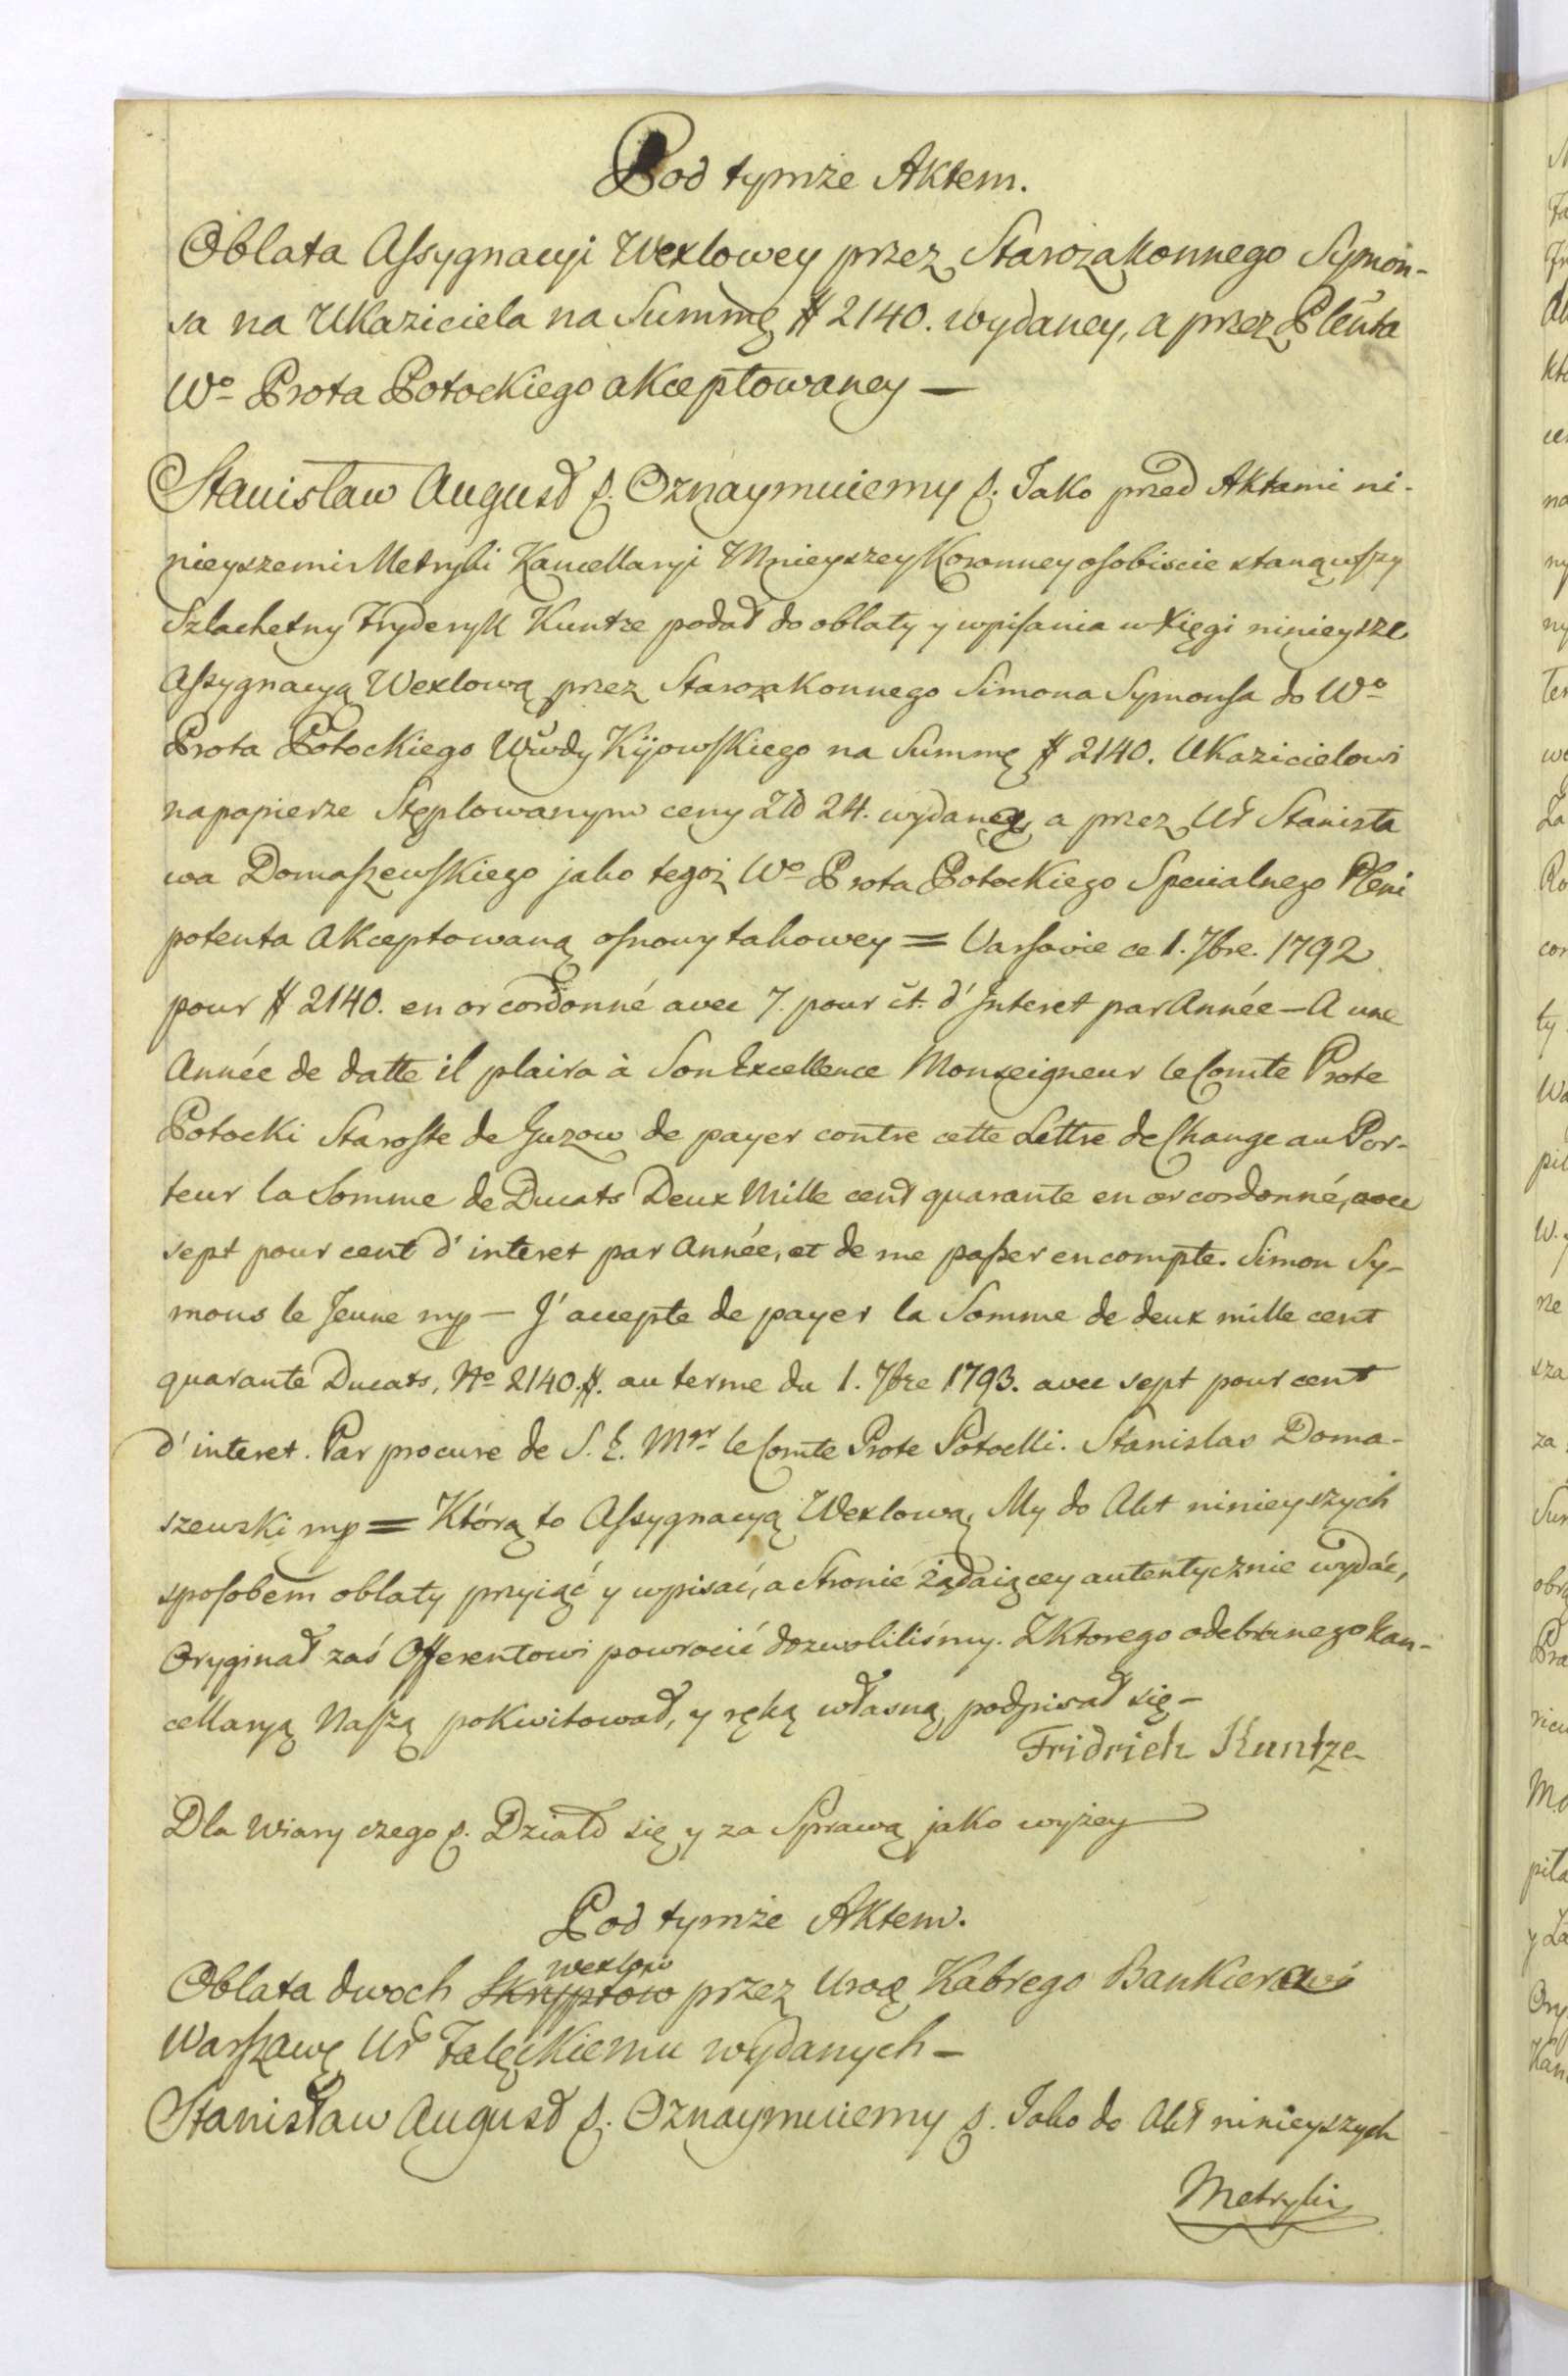 Pod tymże Aktem.
Oblata Assygnacyi Wexlowey przez Starozakonnego Symon-
sa na Ukaziciela na Summę # 2140. wydaney, a przez Plenta
Wo Prota Potockiego akceptowaney —
Stanisław August f. Oznaymuiemy f. Jako przed Aktami ni-
nieyszemi Metryki Kancellaryi Mnieyszey Koronney osobiscie stanąwszy
Szlachetny Fryderyk Kuntze podał do oblaty y wpisania w Xięgi ninieysze
Assygnacyą Wexlową przez Starozakonnego Simona Symonsa do Wo
Prota Potockiego Wwdy Kijowskiego na Summę # 2140. Ukazicielowi
na papierze Stęplowanym ceny Złł 24. wydaną, a przez Ur Stanisła
wa Domaszewskiego jako tegoż Wo Prota Potockiego Specialnego Pleni
potenta Akceptowaną osnowy takowey = Varsovie ce 1. 7bre. 1792
pour # 2140. en or cordonné avec 7. pour ct. d'Interet par Année — A une
Année de datte il plaira à Son Excellence Monseigneur le Comte Prote
Potocki Staroste de Guzow de payer contre cette Lettre de Change au Por-
teur la Somme de Ducats Deux Mille cent quarante en or cordonné, avec
sept pour cent d'interet par Année, et de me passer en compte. Simon Sy-
mons le Jeune mp — J'accepte de payer la Somme de deux mille cent
quarante Ducats, No 2140. #. au terme du 1. 7bre 1793. avec sept pour cent
d'interet. Par procure de S. E. Mgr le Comte Prote Potocki. Stanislas Doma-
szewski mp = Którą to Assygnacyą Wexlową, My do Akt ninieyszych
sposobem oblaty przyiąć y wpisać, a Stronie żądaiącey autentycznie wydać,
Oryginał zaś Offerentowi powrocić dozwoliliśmy. Z Ktorego odebranego Kan-
cellaryą Naszą pokwitował, y ręką własną podpisał się —
Fridrich Kuntze
Dla Wiary czego f. Działo się y za Sprawą jako wyżey
Pod tymże Aktem.
wexlow
Oblata dwoch Skryptow przez Urog Kabrego Bankiera
Warszawę Ur Zalęckiemu wydanych —
Stanisław August f. Oznaymuiemy f. Jako do Akt ninieyszych
Metryki